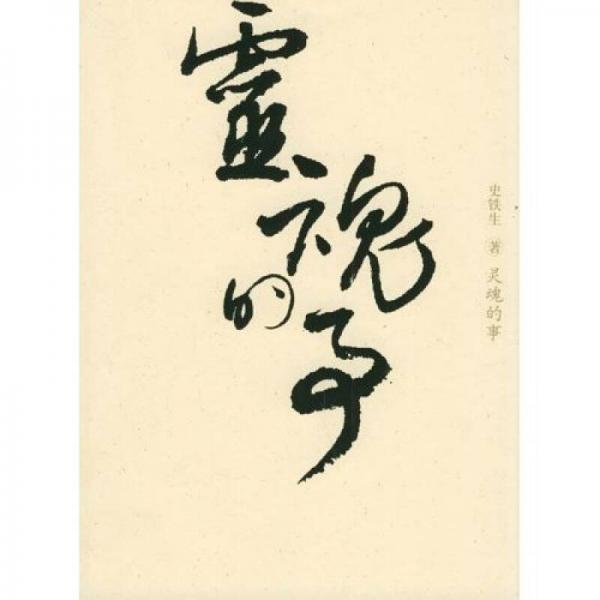 靈魂的事
史铁生 著 灵魂的事